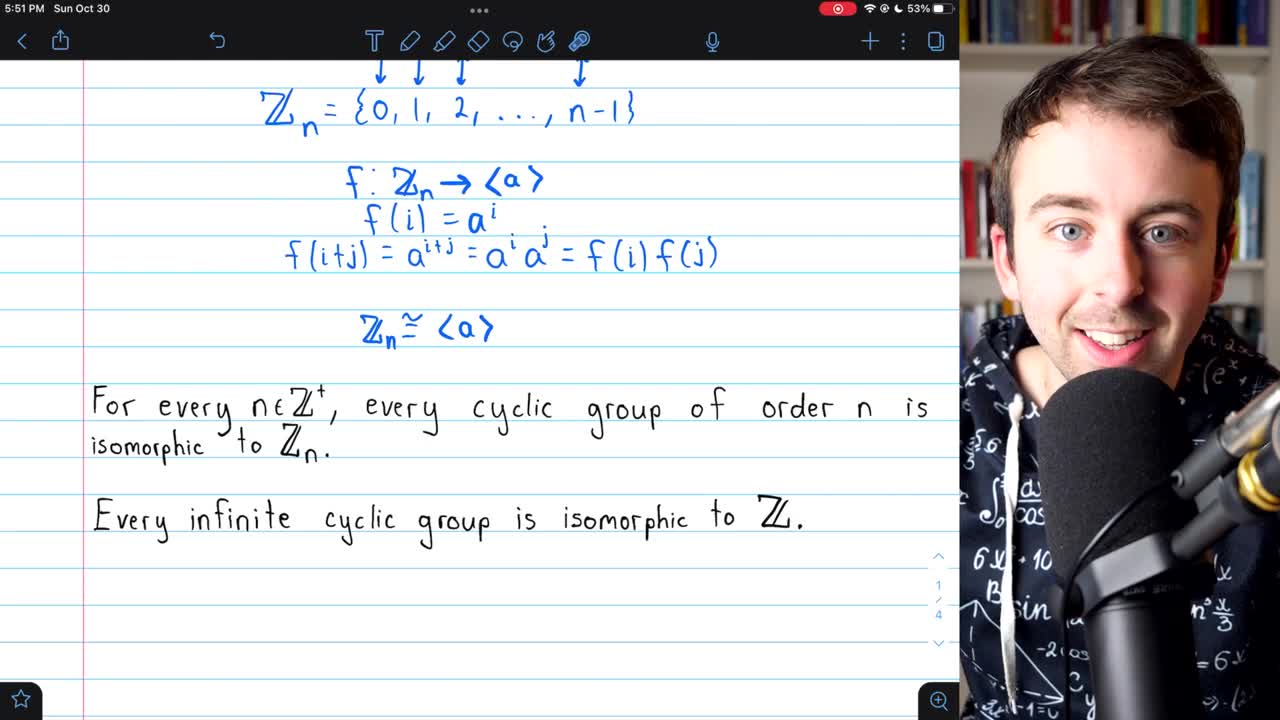 5:51 PM Sun Oct 30
53%
ℤₙ = {0, 1, 2, ..., n-1}
f: ℤₙ → ⟨a⟩
f(i) = aⁱ
f(i+j) = aⁱ⁺ʲ = aⁱ aʲ = f(i) f(j)
ℤₙ ≅ ⟨a⟩
For every n∈ℤ⁺, every cyclic group of order n is
isomorphic to ℤₙ.
Every infinite cyclic group is isomorphic to ℤ.
1
/
4
6x + 10
sin
= 6x